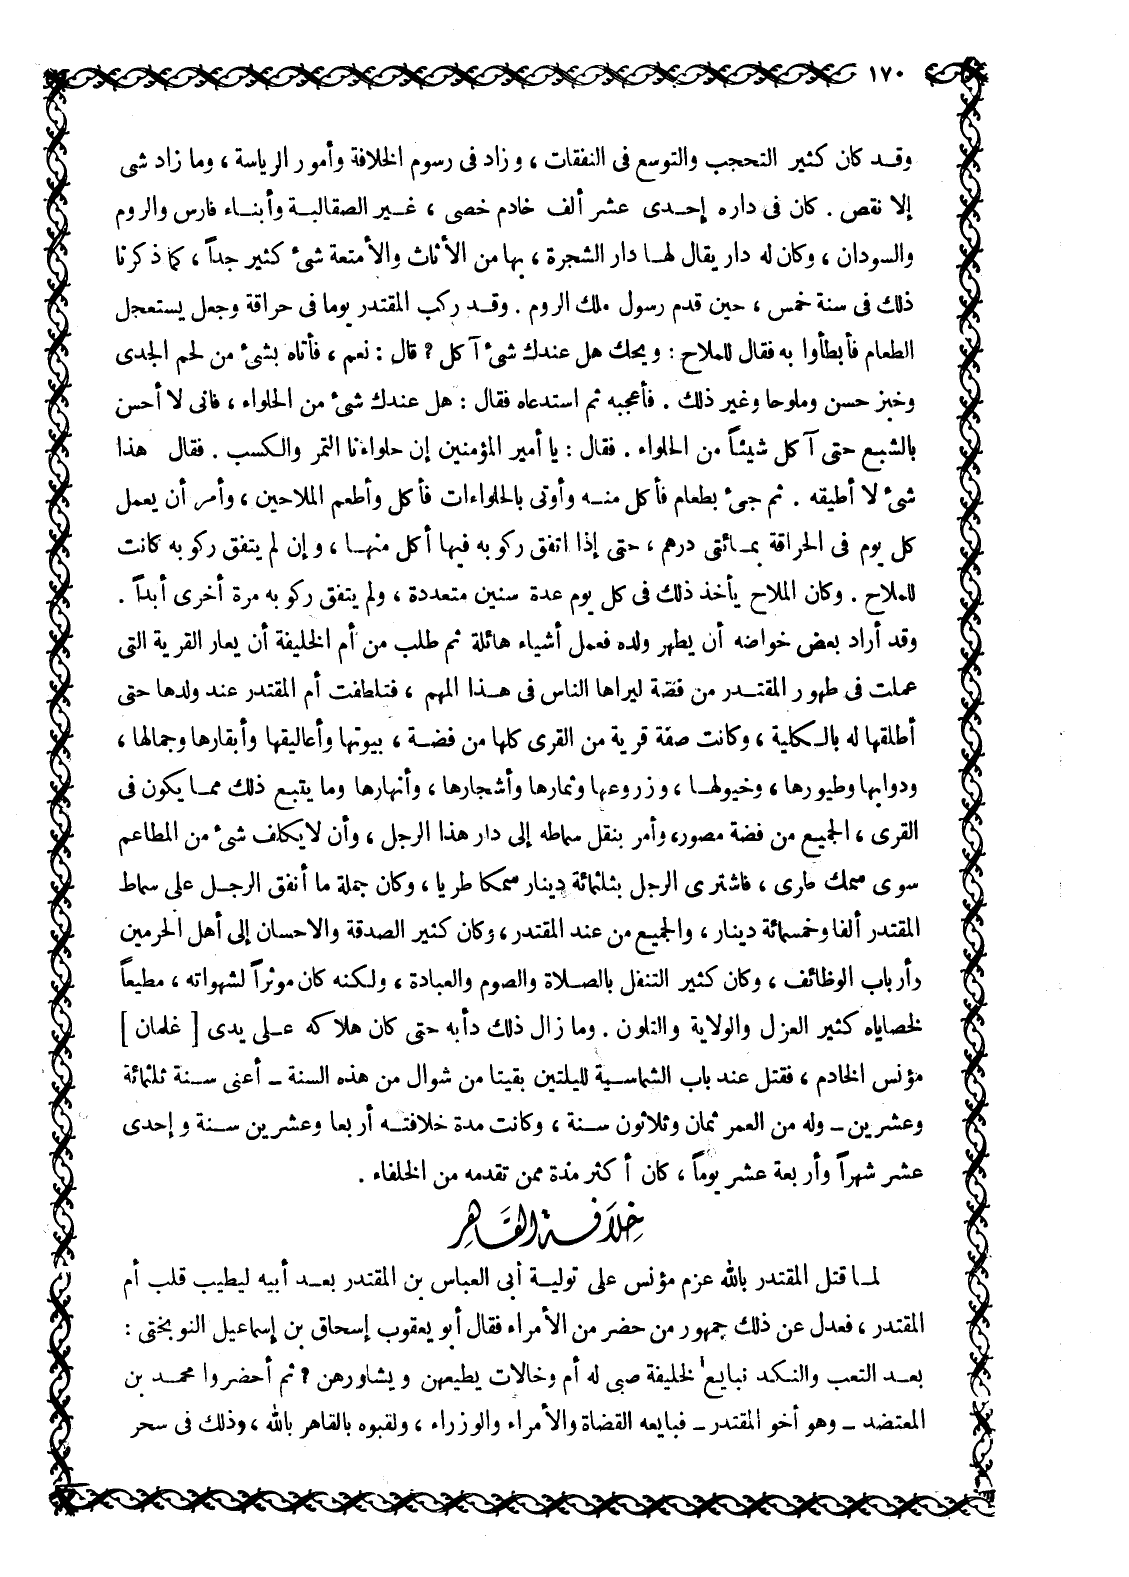 ١٧٠
وقـد كان كثير التحجب والتوسع فى النفقات ، وزاد فى رسوم الخلافة وأمور الرياسة ، وما زاد شى
إلا نقص . كان فى داره إحـدى عشر ألف خادم خصى ، غـير الصقالبـة وأبنـاء فارس والروم
والسودان ، وكان له دار يقال لهـا دار الشجرة ، بها من الأثاث والأمتعة شىء كثير جداً ، كما ذكرنا
ذلك فى سنة خمس ، حين قدم رسول ملك الروم . وقـد ركب المقتدر يوما فى حراقة وجعل يستعجل
الطعام فأبطأوا به فقال للملاح : ويحك هل عندك شىء آكل ? قال : نعم ، فأتاه بشىء من لحم الجدى
وخبز حسن وملوحا وغير ذلك . فأعجبه ثم استدعاه فقال : هل عندك شىء من الحلواء ، فانى لا أحسن
بالشبع حتى آكل شيئاً من الحلواء . فقال : يا أمير المؤمنين إن حلواءنا التمر والكسب . فقال هذا
شىء لا أطيقه . ثم جىء بطعام فأكل منـه وأوتى بالحلواءات فأكل وأطعم الملاحين ، وأمر أن يعمل
كل يوم فى الحراقة بمـائتى درهم ، حتى إذا اتفق ركوبه فيها أكل منهـا ، وإن لم يتفق ركوبه كانت
للملاح . وكان الملاح يأخذ ذلك فى كل يوم عدة سنين متعددة ، ولم يتفق ركوبه مرة أخرى أبداً .
وقد أراد بعض خواضه أن يطهر ولده فعمل أشياء هائلة ثم طلب من أم الخليفة أن يعار القرية التى
عملت فى طهور المقتـدر من فضة ليراها الناس فى هـذا المهم ، فتلطفت أم المقتدر عند ولدها حتى
أطلقها له بالـكلية ، وكانت صفة قرية من القرى كلها من فضـة ، بيوتها وأعاليقها وأبقارها وجمالها ،
ودوابها وطيورها ، وخيولهـا ، وزروعها وثمارها وأشجارها ، وأنهارها وما يتبع ذلك ممـا يكون فى
القرى ، الجميع من فضة مصور، وأمر بنقل سماطه إلى دار هذا الرجل ، وأن لا يكلف شىء من المطاعم
سوى سمك طرى ، فاشترى الرجل بثلثمائة دينار سمكا طريا ، وكان جملة ما أنفق الرجـل على سماط
المقتدر ألفا وخمسمائة دينار ، والجميع من عند المقتدر ، وكان كثير الصدقة والاحسان إلى أهل الحرمين
وأرباب الوظائف ، وكان كثير التنفل بالصـلاة والصوم والعبادة ، ولـكنه كان موثراً لشهواته ، مطيعاً
لخصاياه كثير العزل والولاية والتلون . وما زال ذلك دأبه حتى كان هلاكه عـلى يدى [ غلمان ]
مؤنس الخادم ، فقتل عند باب الشماسية لليلتين بقيتا من شوال من هذه السنة ـ أعنى سـنة ثلثمائة
وعشرين ـ وله من العمر ثمان وثلاثون سـنة ، وكانت مدة خلافتـه أربعا وعشرين سـنة وإحدى
عشر شهراً وأربعة عشر يوماً ، كان أكثر مدة ممن تقدمه من الخلفاء .
خِلَافة القَاهِرِ
لمـا قتل المقتدر بالله عزم مؤنس على توليـة أبى العباس بن المقتدر بعـد أبيه ليطيب قلب أم
المقتدر ، فعدل عن ذلك جمهور من حضر من الأمراء فقال أبو يعقوب إسحاق بن إسماعيل النوبختى :
بعـد التعب والنـكد نبايع لخليفة صبى له أم وخالات يطيعهن ويشاورهن ? ثم أحضروا محمـد بن
المعتضد ـ وهو أخو المقتدر ـ فبايعه القضاة والأمراء والوزراء ، ولقبوه بالقاهر بالله ، وذلك فى سحر